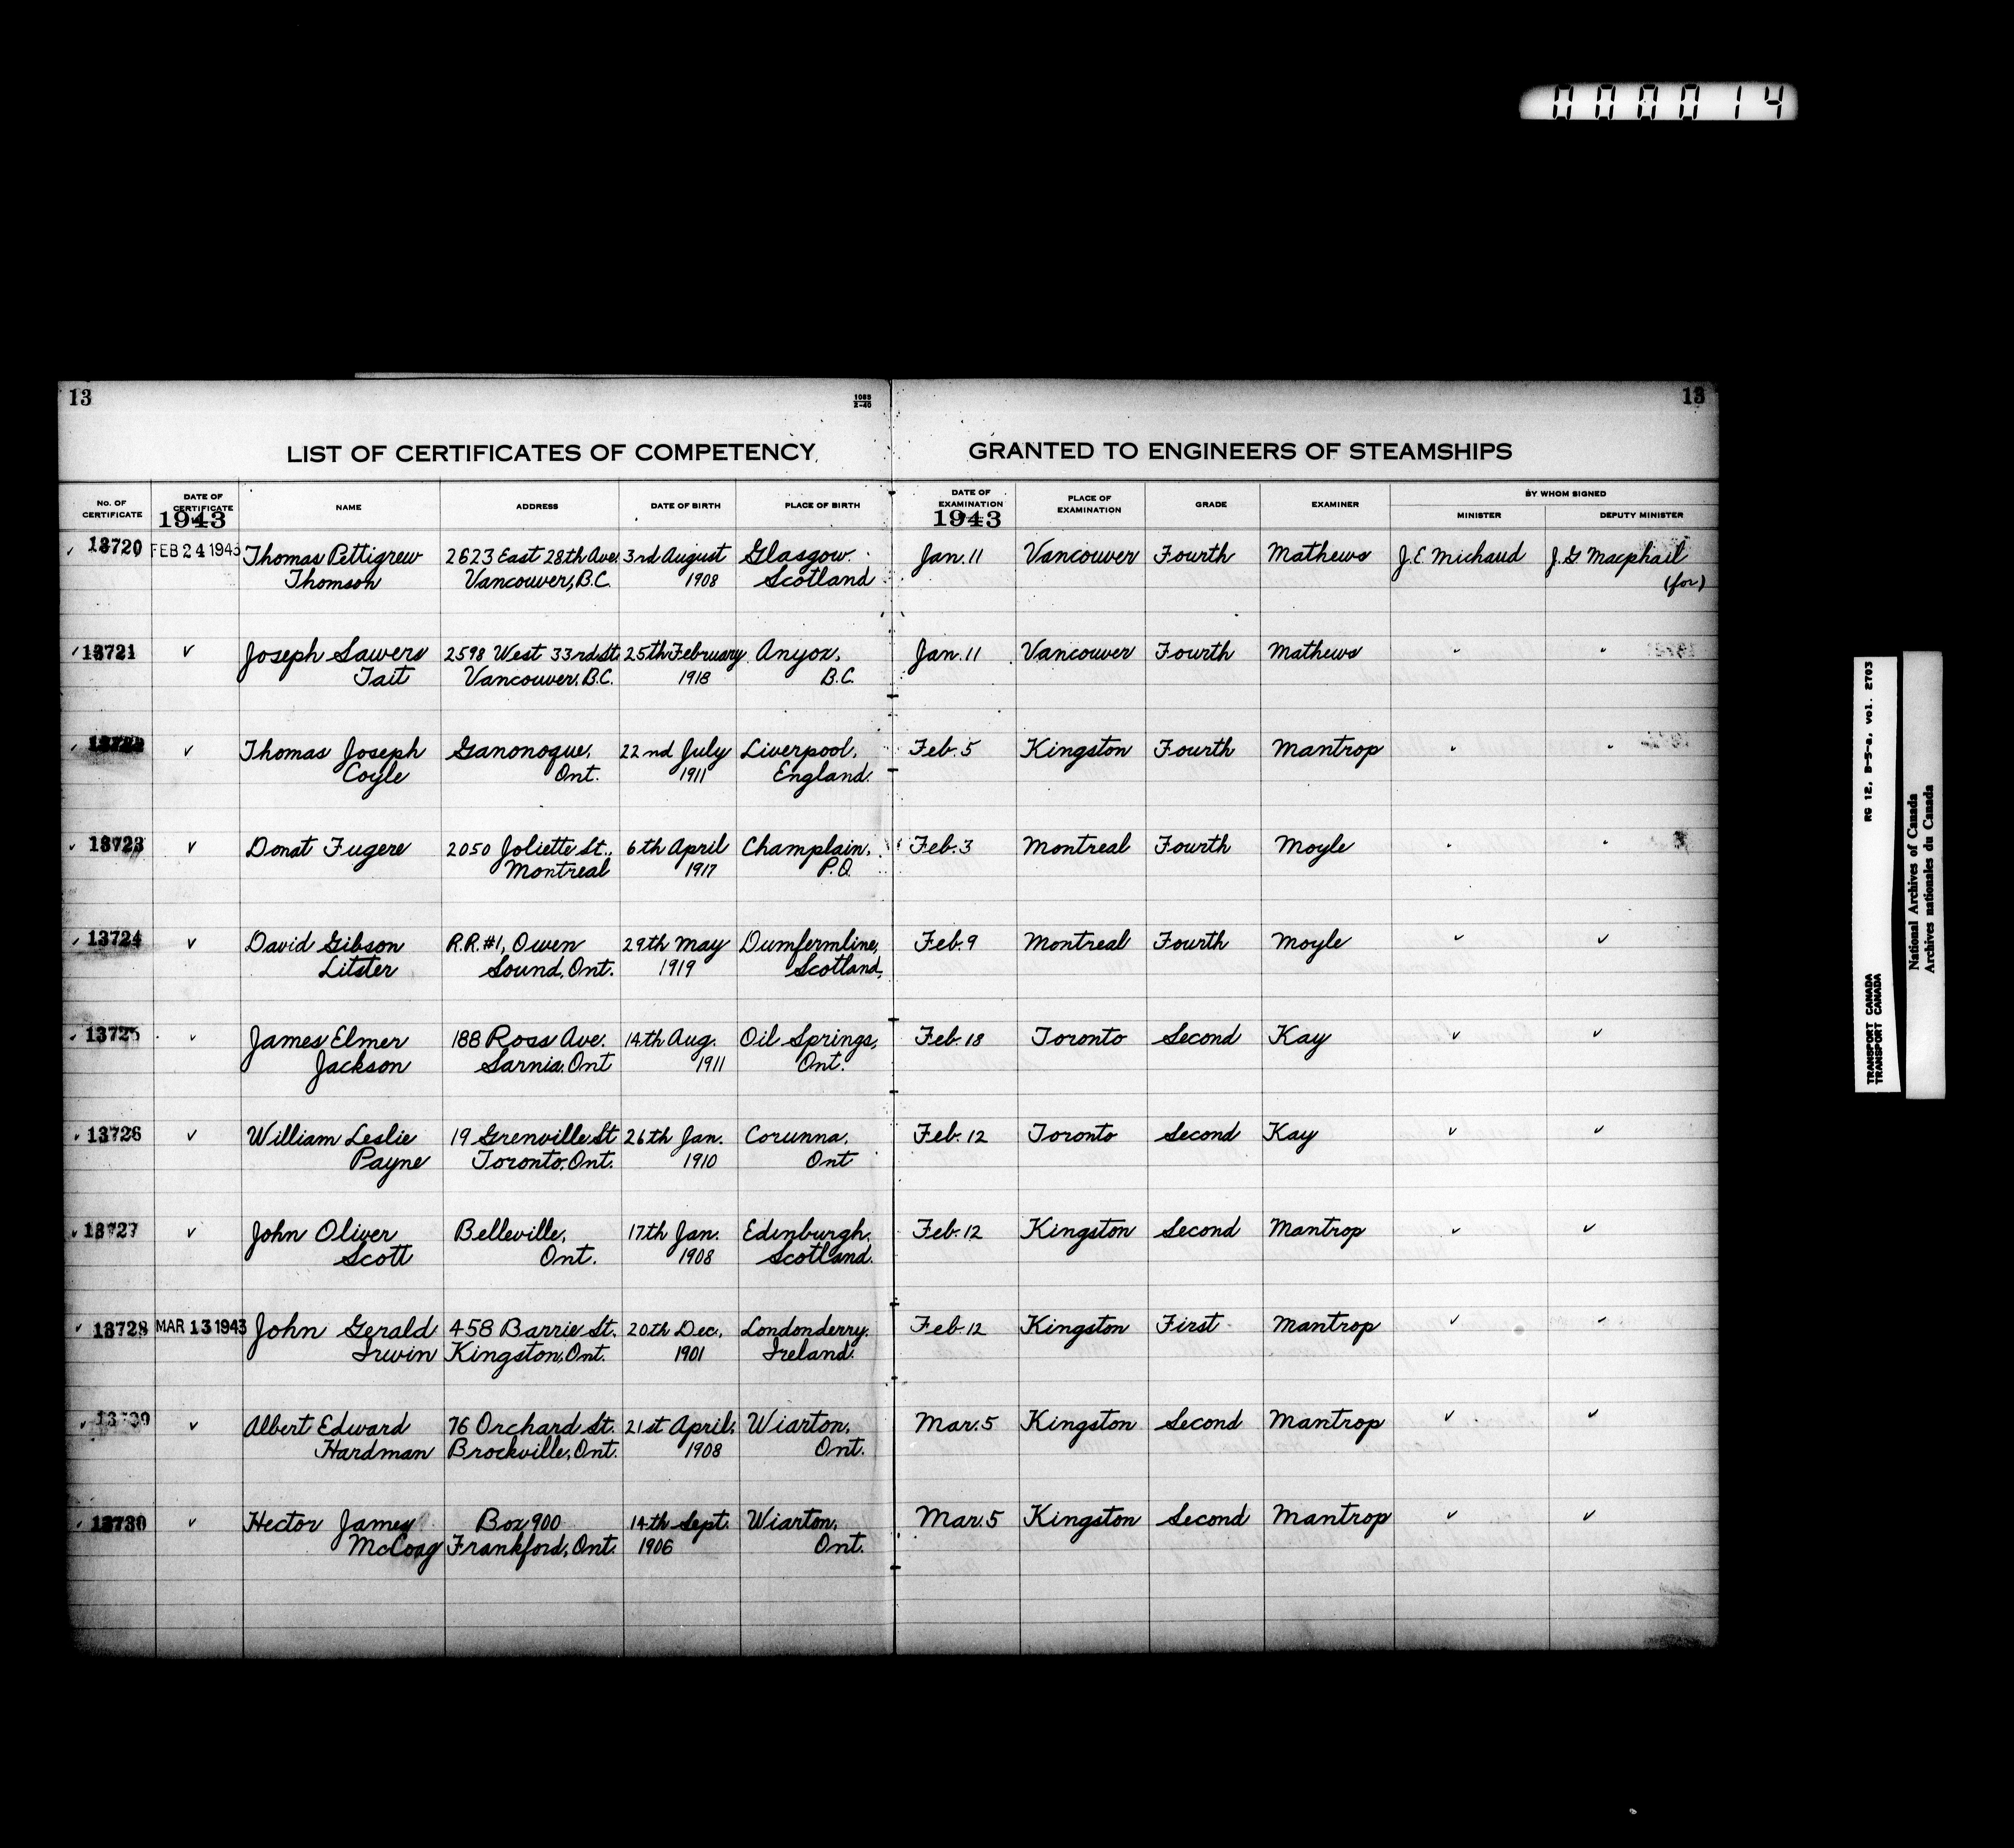 0000014
13
1085
2-40
13
LIST OF CERTIFICATES OF COMPETENCY GRANTED TO ENGINEERS OF STEAMSHIPS
No. OF CERTIFICATE DATE OF CERTIFICATE 1943 NAME ADDRESS DATE OF BIRTH PLACE OF BIRTH DATE OF EXAMINATION 1943 PLACE OF EXAMINATION GRADE EXAMINER BY WHOM SIGNED
MINISTER DEPUTY MINISTER
13720 FEB 24 1943 Thomas Pettigrew 2623 East 28th Ave. 3rd August Glasgow. Jan. 11 Vancouver Fourth Mathews J.E. Michaud J.G. Macphail
Thomson Vancouver, B.C. 1908 Scotland (for)
13721 ✓ Joseph Sawers 2598 West 33rd St. 25th February Anyox, Jan. 11 Vancouver Fourth Mathews " "
Tait Vancouver, B.C. 1918 B.C.
13722 ✓ Thomas Joseph Ganonoque, 22nd July Liverpool, Feb. 5 Kingston Fourth Mantrop " "
Coyle Ont. 1911 England.
13723 ✓ Donat Fugere 2050 Joliette St., 6th April Champlain, Feb. 3 Montreal Fourth Moyle " "
Montreal 1917 P.Q.
13724 ✓ David Gibson R.R. #1, Owen 29th May Dumfermline, Feb. 9 Montreal Fourth Moyle ✓ ✓
Litster Sound, Ont. 1919 Scotland,
13725 ✓ James Elmer 188 Ross Ave. 14th Aug. Oil Springs, Feb. 18 Toronto Second Kay ✓ ✓
Jackson Sarnia, Ont 1911 Ont.
13726 ✓ William Leslie 19 Grenville St 26th Jan. Corunna, Feb. 12 Toronto Second Kay ✓ ✓
Payne Toronto, Ont. 1910 Ont
13727 ✓ John Oliver Belleville, 17th Jan. Edinburgh, Feb. 12 Kingston Second Mantrop ✓ ✓
Scott Ont. 1908 Scotland.
13728 MAR 13 1943 John Gerald 458 Barrie St. 20th Dec. Londonderry, Feb. 12 Kingston First Mantrop ✓ ✓
Irwin Kingston, Ont. 1901 Ireland.
✓ Albert Edward 76 Orchard St. 21st April, Wiarton, Mar. 5 Kingston Second Mantrop ✓ ✓
Hardman Brockville, Ont. 1908 Ont.
13730 ✓ Hector James Box 900 14th Sept. Wiarton, Mar. 5 Kingston Second Mantrop ✓ ✓
McCoag Frankford, Ont. 1906 Ont.
TRANSPORT CANADA RG 12, B-5-a, vol. 2703
TRANSPORT CANADA
National Archives of Canada
Archives nationales du Canada